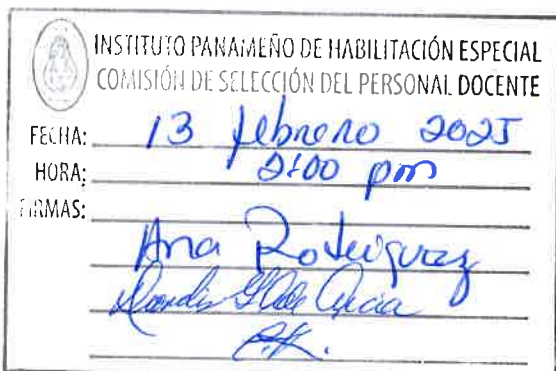 INSTITUTO PANAMEÑO DE HABILITACIÓN ESPECIAL
COMISIÓN DE SELECCIÓN DEL PERSONAL DOCENTE
FECHA: 13 febrero 2025
HORA: 2:00 pm
FIRMAS:
Ana Rodríguez